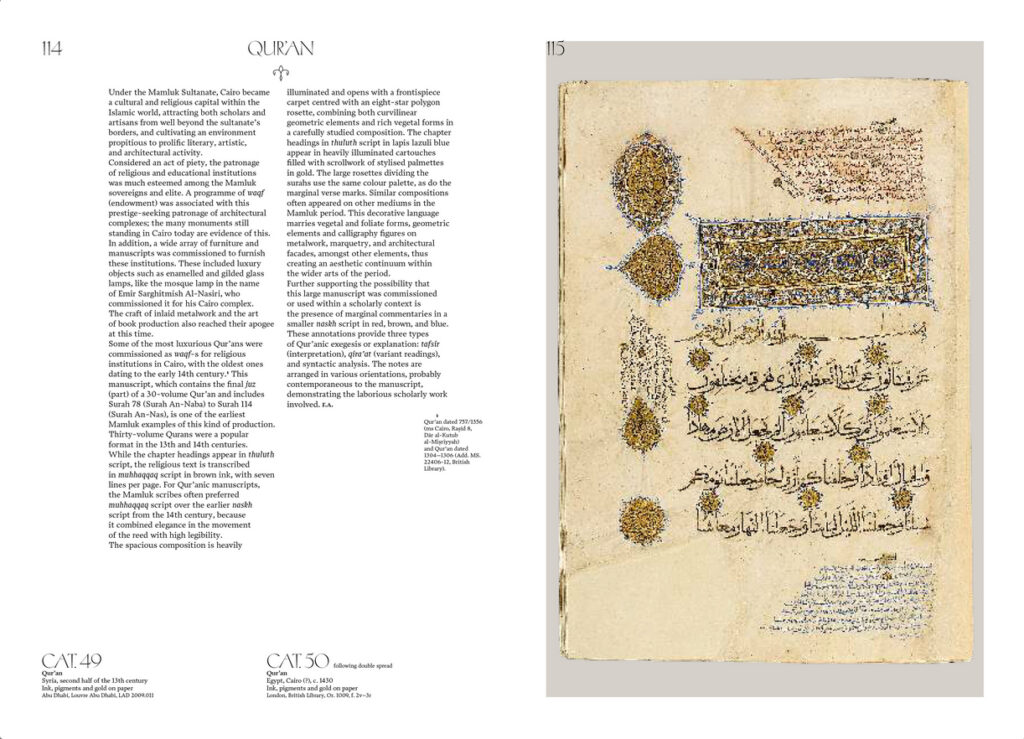 114
QUR'AN
Under the Mamluk Sultanate, Cairo became
a cultural and religious capital within the
Islamic world, attracting both scholars and
artisans from well beyond the sultanate's
borders, and cultivating an environment
propitious to prolific literary, artistic,
and architectural activity.
Considered an act of piety, the patronage
of religious and educational institutions
was much esteemed among the Mamluk
sovereigns and elite. A programme of waqf
(endowment) was associated with this
prestige-seeking patronage of architectural
complexes; the many monuments still
standing in Cairo today are evidence of this.
In addition, a wide array of furniture and
manuscripts was commissioned to furnish
these institutions. These included luxury
objects such as enamelled and gilded glass
lamps, like the mosque lamp in the name
of Emir Sarghitmish Al-Nasiri, who
commissioned it for his Cairo complex.
The craft of inlaid metalwork and the art
of book production also reached their apogee
at this time.
Some of the most luxurious Qur'ans were
commissioned as waqf-s for religious
institutions in Cairo, with the oldest ones
dating to the early 14th century.¹ This
manuscript, which contains the final juz
(part) of a 30-volume Qur'an and includes
Surah 78 (Surah An-Naba) to Surah 114
(Surah An-Nas), is one of the earliest
Mamluk examples of this kind of production.
Thirty-volume Qurans were a popular
format in the 13th and 14th centuries.
While the chapter headings appear in thuluth
script, the religious text is transcribed
in muhhaqqaq script in brown ink, with seven
lines per page. For Qur'anic manuscripts,
the Mamluk scribes often preferred
muhhaqqaq script over the earlier naskh
script from the 14th century, because
it combined elegance in the movement
of the reed with high legibility.
The spacious composition is heavily
illuminated and opens with a frontispiece
carpet centred with an eight-star polygon
rosette, combining both curvilinear
geometric elements and rich vegetal forms in
a carefully studied composition. The chapter
headings in thuluth script in lapis lazuli blue
appear in heavily illuminated cartouches
filled with scrollwork of stylised palmettes
in gold. The large rosettes dividing the
surahs use the same colour palette, as do the
marginal verse marks. Similar compositions
often appeared on other mediums in the
Mamluk period. This decorative language
marries vegetal and foliate forms, geometric
elements and calligraphy figures on
metalwork, marquetry, and architectural
facades, amongst other elements, thus
creating an aesthetic continuum within
the wider arts of the period.
Further supporting the possibility that
this large manuscript was commissioned
or used within a scholarly context is
the presence of marginal commentaries in a
smaller naskh script in red, brown, and blue.
These annotations provide three types
of Qur'anic exegesis or explanation: tafsir
(interpretation), qira'at (variant readings),
and syntactic analysis. The notes are
arranged in various orientations, probably
contemporaneous to the manuscript,
demonstrating the laborious scholarly work
involved. F.A.
1
Qur'an dated 757/1356
(ms Cairo, Raṣid 8,
Dār al-Kutub
al-Miṣriyyah)
and Qur'an dated
1304–1306 (Add. MS.
22406-12, British
Library).
CAT. 49
Qur'an
Syria, second half of the 13th century
Ink, pigments and gold on paper
Abu Dhabi, Louvre Abu Dhabi, LAD 2009.011
CAT. 50 following double spread
Qur'an
Egypt, Cairo (?), c. 1430
Ink, pigments and gold on paper
London, British Library, Or. 1009, f. 2v–3r
115
بسم الله الرحمن الرحيم
عم يتسالون عن النبا العظيم الذي هم فيه مختلفون
كلا سيعلمون ثم كلا سيعلمون الم نجعل الارض مهادا
والجبال اوتادا وخلقناكم ازواجا وجعلنا نومكم
سباتا وجعلنا الليل لباسا وجعلنا النهار معاشا